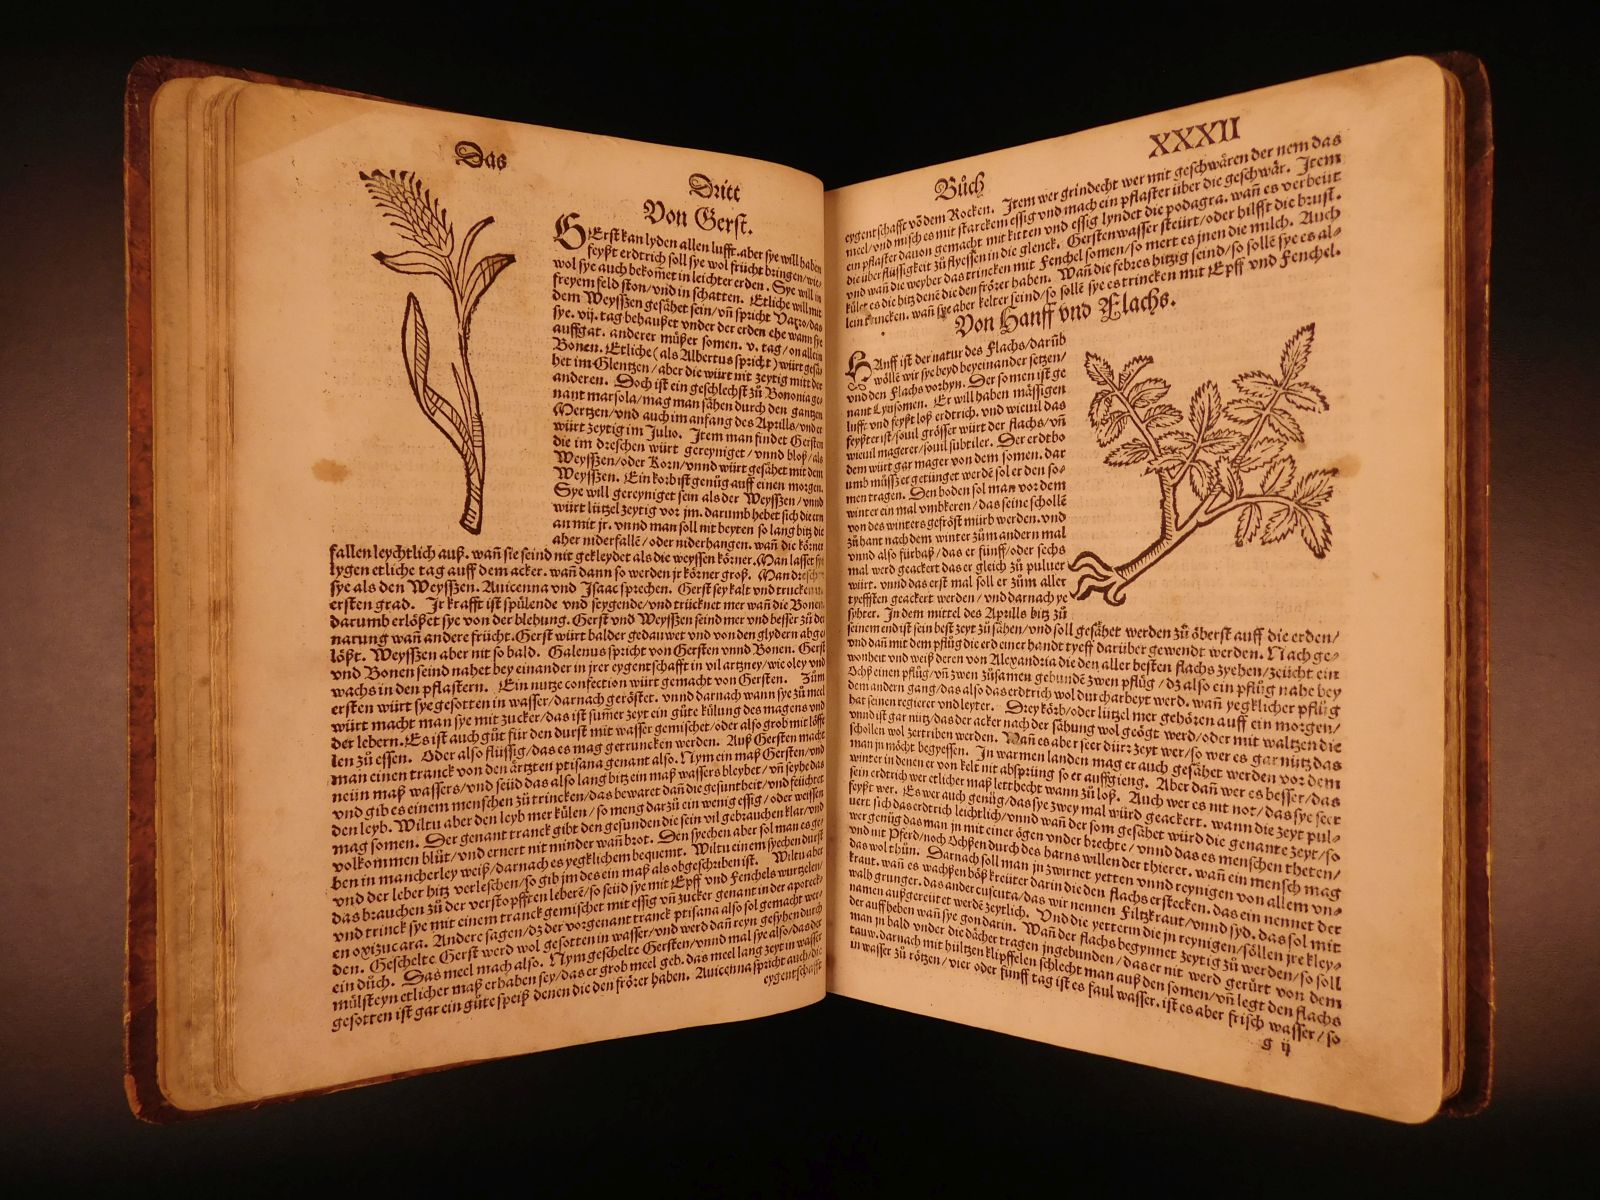 Das
Dritt
Von Gerst.
GErst kan lyden allen lufft. aber sye will haben
feyßt erdtrich soll sye wol frücht bringen/wie-
wol sye auch bekom̄et in leichter erden. Sye will in
freyem feld ston/vnd in schatten. Etliche will mit
dem Weysszen gesähet sein/vn̄ spricht Varro/das
sye. vij. tag behaußet vnder der erden ehe wann sye
auffgat. anderer müßer somen. v. tag/on allein
Bonen. Etliche (als Albertus spricht) würt gesä-
het im Glentzen/aber die würt nit zeytig mitt der
anderen. Doch ist ein geschlechst zů Bononia ge-
nant marsola/mag man sähen durch den gantzen
Mertzen/vnd auch im anfang des Aprills/vnd er
würt zeytig im Julio. Item man findet Gersten
die im dreschen würt gereyniget/vnnd bloß/als
Weysszen/oder Korn/vnnd würt gesähet mit dem
Weysszen. Ein korb ist genůg auff einen morgen.
Sye will gereyniget sein als der Weysszen/vnnd
würt lützel zeytig vor jm. darumb hebet sich die ern
an mit jr. vnnd man soll nit beyten so lang bitz die
aher niderfallē/oder niderhangen. wan̄ die körner
fallen leychtlich auß. wan̄ sie seind nit gekleydet als die weyssen körner. Man lasset sye
lygen etliche tag auff dem acker. wan̄ dann so werden jr körner groß. Man dresch
sye als den Weysszen. Auicenna vnd Isaac sprechen. Gerst sey kalt vnd trucken
ersten grad. Ir krafft ist spülende vnd seygende/vnd trücknet mer wan̄ die Bonen
darumb erlößet sye von der blehung. Gerst vnd Weysszen seind mer vnd besser zů der
narung wan̄ andere frücht. Gerst würt balder gedauwet vnd von den glydern abge-
lößt. Weysszen aber nit so bald. Galenus spricht von Gersten vnnd Bonen. Gerst
vnd Bonen seind nahet bey einander in jrer eygentschafft in vil artzney/wie oley vnd
wachs in den pflastern. Ein nutze confection würt gemacht von Gersten. Zům
ersten würt sye gesotten in wasser/darnach geröstet. vnnd darnach wann sye zů meel
würt macht man sye mit zucker/das ist sum̄er zeyt ein gůte külung des magens vnd
der lebern. Es ist auch gůt für den durst mit wasser gemischet/oder also grob mit löffe
len zů essen. Oder also flüssig/das es mag getruncken werden. Auß Gersten macht
man einen tranck von den ärtzten ptisana genant also. Nym ein maß Gersten/vnd
neün maß wassers/vnd seüd das also lang bitz ein maß wassers bleybet/vn̄ seyhe das
vnd gib es einem menschen zů trincken/das bewaret dan̄ die gesuntheit/vnd feüchtet
den leyb. Wiltu aber den leyb mer külen/so meng darzů ein wenig essig/oder weissen
mag somen. Der genant tranck gibt den gesunden die sein vil gebrauchen klar/vnd
volkommen blůt/vnd ernert nit minder wan̄ brot. Den syechen aber sol man es ge-
ben in mancherley weiß/darnach es yegklichem bequemt. Wiltu einem syechen durst
vnd der leber hitz verleschen/so gib jm des ein maß als obgeschriben ist. Wiltu aber
das brauchen zů der verstopfften leberē/so seüd sye mit Epff vnd Fenchels wurtzelen/
vnd trinck sye mit einem tranck gemischet mit essig vn̄ zucker genant in der apoteck-
en oxizucara. Andere sagen/dz der vorgenant tranck ptisana also sol gemacht wer-
den. Geschelte Gerst werd wol gesotten in wasser/vnd werd dan̄ reyn gesyhen durch
ein důch. Das meel mach also. Nym geschelte Gersten/vnnd mal sye also/das der
mülsteyn etlicher maß erhaben sey/das er grob meel geb. das meel lang zeyt in wasser
gesotten ist gar ein gůte speiß denen die den frörer haben. Auicenna spricht auch/die
eygentschafft
Bůch
XXXII
eygentschafft vō dem Rocken. Item wer grindecht wer mit geschwären der nem das
meel/vnd misch es mit starckem essig vnd mach ein pflaster über die geschwär. Item
ein pflaster dauon gemacht mit kitten vnd essig lyndet die podagra. wan̄ es verbeüt
die über flüssigkeit zů flyessen in die glenck. Gerstenwasser steürt/oder hilfft die brust.
vnd wan̄ die weyber das trincken mit Fenchel somen/so mert es jnen die milch. Auch
kület es die hitz denē die den frörer haben. Wan̄ die febres hitzig seind/so sollē sye es al-
lein trincken. wan̄ sye aber kelter seind/so sollē sye es trincken mit Epff vnd Fenchel.
Von Hanff vnd Flachs.
HAnff ist der natur des Flachs/darūb
wöllē wir sye beyd beyeinander setzen/
vnd den Flachs vorhyn. Der somen ist ge
nant Lynsomen. Er will haben mässigen
lufft vnd feyßt loß erdtrich. vnd wieuil das
feyßter ist/souil grösser würt der flachs/vn̄
wieuil magerer/souil subtiler. Der erdtbo
dem würt gar mager von dem somen. dar
umb můßzer getünget werdē sol er den so-
men tragen. Den boden sol man vor dem
winter ein mal vmbkeren/das seine schollē
von des winters gefröst mürb werden. vnd
zů hant nach dem winter zům andern mal
vnnd also fürbaß/das er fünff/oder sechs
mal werd geackert das er gleich zů puluer
würt. vnnd das erst mal soll er zům aller
tyeffsten geackert werden/vnd darnach ye
syhter. In dem mittel des Aprills bitz zů
seinem end ist sein best zeyt zů sähen/vnd soll gesähet werden zů öberst auff die erden/
vnd dan̄ mit dem pflůg die erd einer handt tyeff darüber gewendt werden. Nach ge-
wonheit vnd weiß deren von Alexandria die den aller besten flachs zyehen/zeücht ein
Ochß einen pflůg/vn̄ zwen zůsamen gebundē zwen pflůg/dz also ein pflůg nahe bey
dem andern gang/das also das erdtrich wol durcharbeyt werd. wan̄ yegklicher pflůg
hat seinen regierer vnd leyter. Drey körb/oder lützel mer gehören auff ein morgen/
vnnd ist gar nütz/das der acker nach der sähung wol geögt werd/oder mit waltzen die
schollen wol zertriben werden. Wan̄ es aber seer dürz zeyt wer/so wer es gar nütz das
man jn möcht begyessen. In warmen landen mag er auch gesähet werden vor dem
winter in denen er von kelt nit absprüng so er auffgieng. Aber dan̄ wer es besser/das
sein erdtrich wer etlicher maß lettbecht wann zů loß. Auch wer es nit not/das sye seer
feyßt wer. Es wer auch genůg/das sye zwey mal würd geackert. wann die zeyt pul-
uert sich das erdtrich leichtlich/vnnd wan̄ der som gesähet würd die genante zeyt/so
wer genůg das man jn mit einer ögen vnder brechte/vnnd das es menschen theten/
vnd nit Pferd/noch Ochßen durch des harns willen der thierer. wan̄ ein mensch mag
das wol thůn. Darnach soll man jn zwirnet yetten vnnd reynigen von allem vn-
kraut. wan̄ es wachßen böß kreüter darin die den flachs erstecken. das ein nennet der
walb grunger. das ander cuscuta/das wir nennen Filtzkraut/vnnd syd. das sol mit
namen außgereüt et werdē zeytlich. Vnd die yetterin die jn reynigen/söllen jre kley-
der auffheben wan̄ sye gon darin. Wan̄ der flachs begynnet zeytig zů werden/so soll
man jn bald vnder die dächer tragen jngebunden/das er nit werd gerürt von dem
tauw. darnach mit hültzen klipffelen schlecht man auß den somen/vn̄ legt den flachs
in wasser zů rötzen/vier oder fünff tag ist es faul wasser. ist es aber frisch wasser/so
g ij